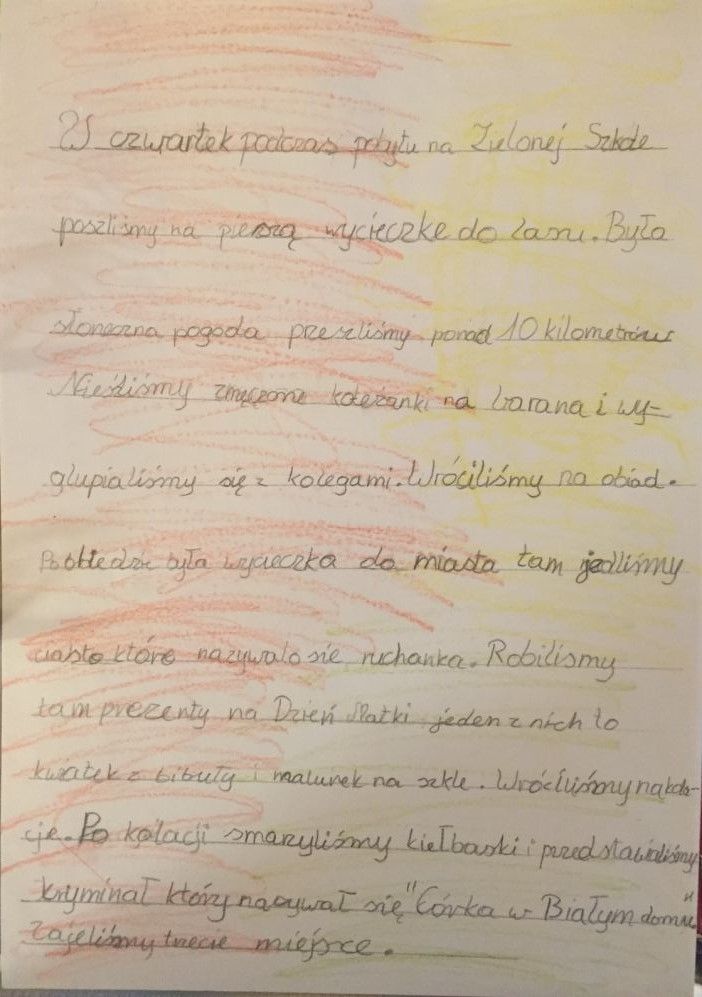 W czwartek podczas pobytu na Zielonej Szkole
poszliśmy na pierszą wycieczke do lasu. Była
słoneczna pogoda przeszliśmy ponad 10 kilometrów
Nieśliśmy zmęczone koleżanki na barana i wy-
głupialiśmy się z kolegami. Wróciliśmy na obiad.
Po obiedzie była wycieczka do miasta tam jedliśmy
ciasto które nazywało sie ruchanka. Robilismy
tam prezenty na Dzień Matki jeden z nich to
kwiatek z bibuły i malunek na szkle. Wróciliśmy na kola-
cje. Po kolacji smaryliśmy kiełbaski i przedstawialiśmy
kryminał który nazywał się "Córka w Białym domu"
Zajeliśmy trzecie miejsce.